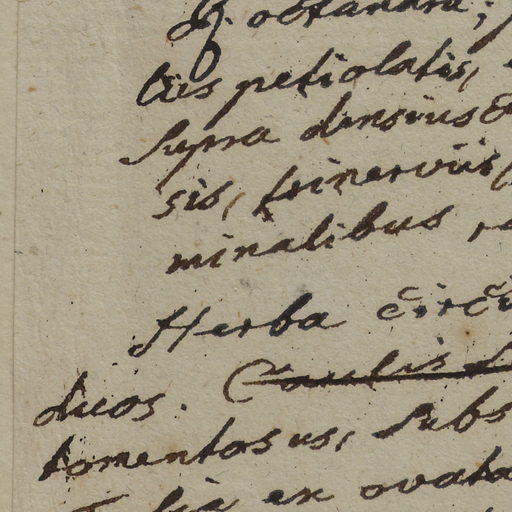 octandra;
liis petiolatis,
supra densius &
sis, trinerviis,
minalibus,
Herba circi
duos. Caulis
tomentosus, subs
lia ex ovata